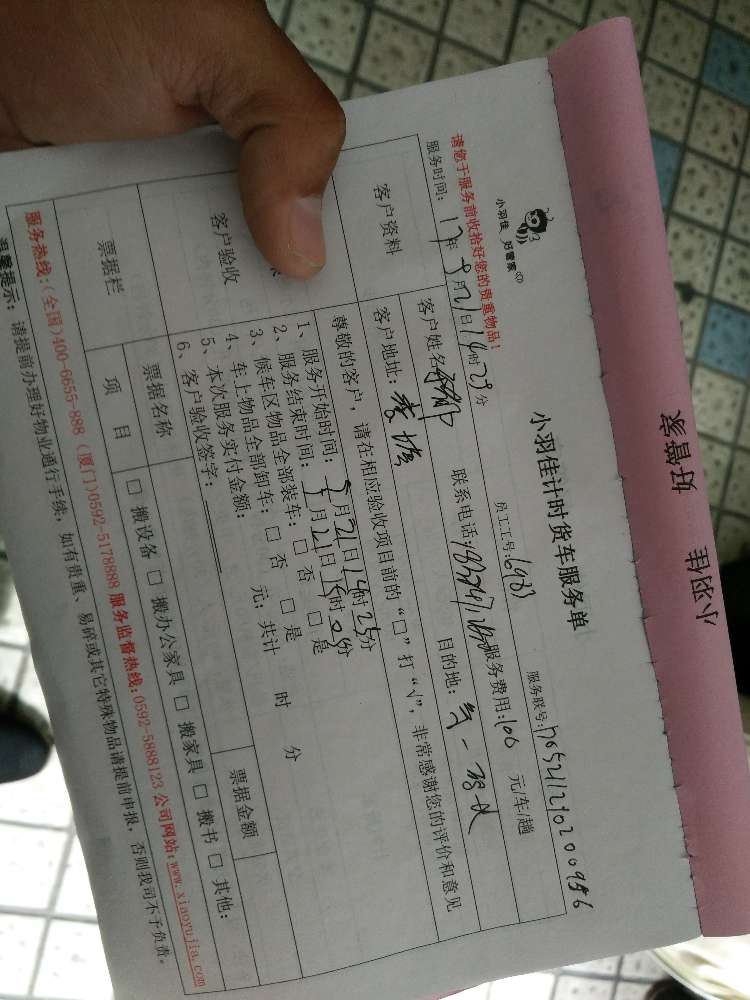 好管家 小羽佳
小羽佳 好管家
小羽佳计时货车服务单
请您于服务前收拾好您的贵重物品!
服务时间: 17年 月21日14时25分 员工工号: 服务联号:
客户资料
客户姓名: 联系电话: 服务费用: 元/车/趟
客户地址: 目的地:
客户验收
尊敬的客户,请在相应验收项目前的“□”打“√”,非常感谢您的评价和意见
1、服务开始时间: 月21日14时25分
2、服务结束时间: 月21日 时 分
3、候车区物品全部装车: □ 否 □ 是
4、车上物品全部卸车: □ 否 □ 是
5、本次服务实付金额: 元; 共计 时 分
6、客户验收签字:
票据栏
票据名称 票据金额
项目 □ 搬设备 □ 搬办公家具 □ 搬家具 □ 搬书 □ 其他:
服务热线:(全国)400-6655-888 (厦门)0592-5178888 服务监督热线:0592-5888123 公司网站:www.xiaoyujia.com
温馨提示: 请提前办理好物业通行手续,如有贵重、易碎或其它特殊物品请提前申报,否则我司不予负责。